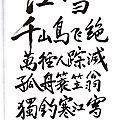 江雪
千山鸟飞绝
萬径人踪滅
孤舟蓑笠翁
獨钓寒江雪